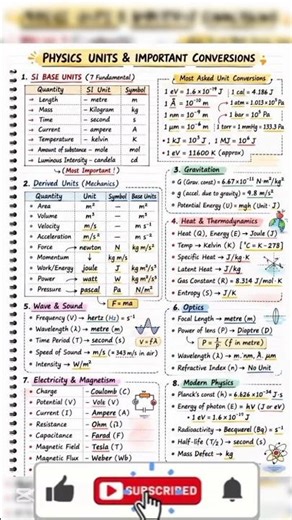 PHYSICS UNITS & IMPORTANT CONVERSIONS
1. SI BASE UNITS (7 Fundamental)
Quantity SI Unit Symbol
→ Length – metre m
→ Mass – Kilogram kg
→ Time – second s
→ Current – ampere A
→ Temperature – kelvin K
→ Amount of substance – mole mol
→ Luminous Intensity – candela cd
(Most Important!)
Most Asked Unit Conversions
1 eV = 1.6 × 10⁻¹⁹ J
1 cal = 4.186 J
1 Å = 10⁻¹⁰ m
→ 1 atm = 1.013×10⁵ Pa
1 nm = 10⁻⁹ m
→ 1 bar = 10⁵ Pa
1 µm = 10⁻⁶ m
1 torr = 1 mmHg = 133.3 Pa
→ 1 kJ = 10³ J, 1 MJ = 10⁶ J
→ 1 eV = 11600 K (approx)
2. Derived Units (Mechanics)
Quantity Unit Symbol Base Units
+ Area m² – m²
• Volume m³ – m³
• Velocity m/s – m/s
• Acceleration m/s² – m/s²
• Force → newton N kg m/s²
• Momentum kg m/s
• Work/Energy joule J kg m²/s²
• Power → watt W kg m²/s³
• Pressure → pascal Pa N/m²
F = ma
3. Gravitation
• G (Grav. const) = 6.67×10⁻¹¹ N·m²/kg²
• g (accel. due to gravity) = 9.8 m/s²
• Potential Energy (U) = mgh (Unit · J)
4. Heat & Thermodynamics
• Heat (Q), Energy (E) → Joule (J)
• Temp → Kelvin (K) [°C = K - 273]
• Specific Heat → J/kg·K
• Latent Heat → J/kg
• Gas Constant (R) = 8.314 J/mol·K
• Entropy (S) → J/K
5. Wave & Sound
• Frequency (V) → hertz (Hz) = s⁻¹
• Wavelength (λ) → metre (m)
• Time Period (T) → second (s)
V = fλ
• Speed of Sound → m/s (≈ 343 m/s in air)
• Intensity → W/m²
6. Optics
• Focal Length → metre (m)
• Power of lens (P) → Dioptre (D)
P = 1/f (f in metre)
• Wavelength (λ) → m, nm, Å, µm
• Refractive Index (n) → No Unit
7. Electricity & Magnetism
• Charge – Coulomb (C)
• Potential (V) – Volt (V)
• Current (I) – Ampere (A)
• Resistance – Ohm (Ω)
• Capacitance – Farad (F)
• Magnetic Field – Tesla (T)
• Magnetic Flux – Weber (Wb)
8. Modern Physics
• Planck's const (h) = 6.626 × 10⁻³⁴ J·s
• Energy of photon (E) = hν (J or eV)
• 1 eV = 1.6 × 10⁻¹⁹ J
• Radioactivity → Becquerel (Bq) = s⁻¹
• Half-life (T½) → second (s)
• Mass Defect → kg
SUBSCRIBED